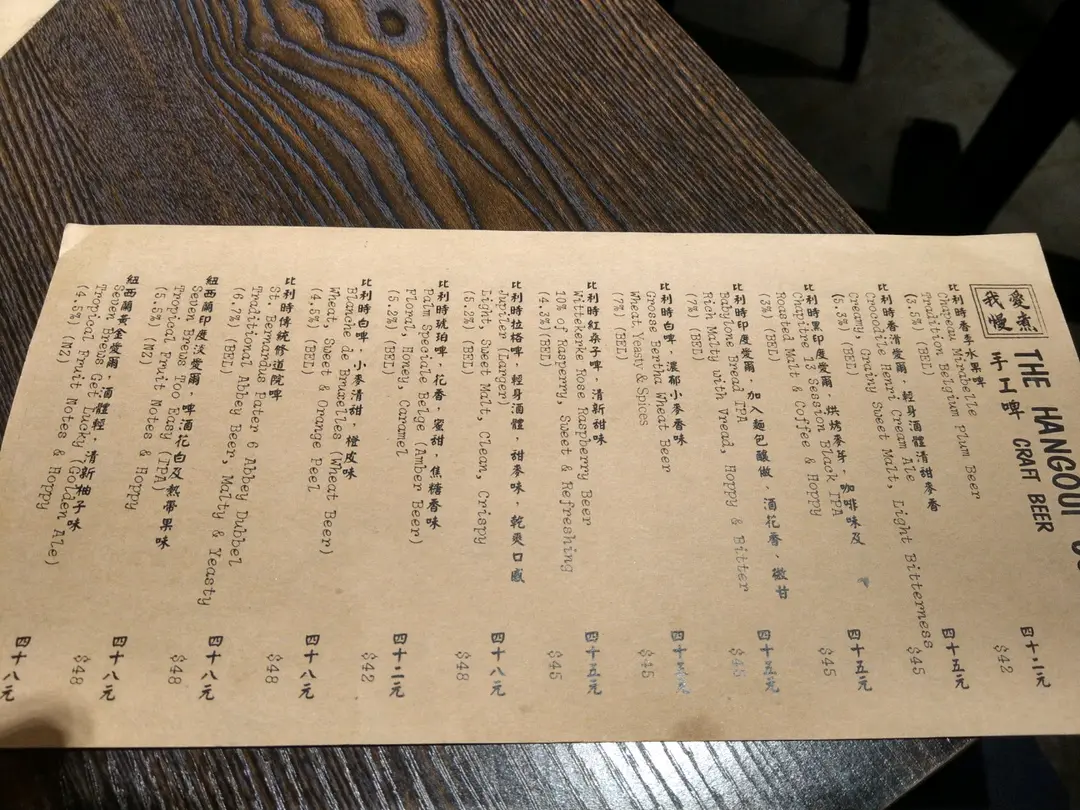 愛煮
我慢
THE HANGOUT
手工啤 CRAFT BEER
比利時香李水果啤 四十二元
Chapeau Mirabelle $42
Tradition Belgium Plum Beer
(3.5%) (BEL)
比利時香滑愛爾．輕身酒體清甜麥香 四十五元
Crocodile Henri Cream Ale $45
Creamy, Grainy Sweet Malt, Light Bitterness
(5.3%) (BEL)
比利時黑印度愛爾．烘烤麥芽．咖啡味及 四十五元
Chapitre 13 Session Black IPA $45
Roasted Malt & Coffee & Hoppy
(3%) (BEL)
比利時印度愛爾．加入麵包釀做．酒花香．微甘 四十五元
Babylone Bread IPA $45
Rich Malty with Vread, Hoppy & Bitter
(7%) (BEL)
比利時白啤．濃郁小麥香味 四十五元
Grosse Bertha Wheat Beer $45
Wheat, Yeasty & Spices
(7%) (BEL)
比利時紅桑子啤．清新甜味 四十五元
Wittekerke Rose Raspberry Beer $45
10% of Rasperry, Sweet & Refreshing
(4.3%)(BEL)
比利時拉格啤．輕身酒體．甜麥味．乾爽口感 四十八元
Jupiter (Larger) $48
Light, Sweet Malt, Clean, Crispy
(5.2%) (BEL)
比利時琥珀啤．花香．蜜甜．焦糖香味 四十二元
Palm Speciale Belge (Amber Beer) $42
Floral, Honey, Caramel
(5.2%) (BEL)
比利時白啤．小麥清甜．橙皮味 四十八元
Blanche de Bruxelles (Wheat Beer) $48
Wheat, Sweet & Orange Peel
(4.5%) (BEL)
比利時傳統修道院啤 四十八元
St. Bernardus Pater 6 Abbey Dubbel $48
Traditional Abbey Beer, Malty & Yeasty
(6.7%) (BEL)
紐西蘭印度淡愛爾．啤酒花白及熱帶果味 四十八元
Seven Brews Too Easy (IPA) $48
Tropical Fruit Notes & Hoppy
(5.5%) (NZ)
紐西蘭黃金愛爾．酒體輕．清新柚子味 四十八元
Seven Brews Get Lucky (Golden Ale)
Tropical Fruit Notes & Hoppy
(4.5%) (NZ)